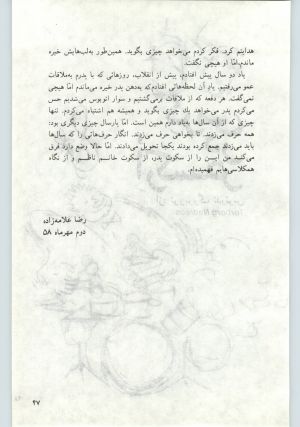 هدایتم کرد. فکر کردم می‌خواهد چیزی بگوید. همین‌طور به‌لب‌هایش خیره
ماندم. امّا او هیچی نگفت.
یاد دو سال پیش افتادم، پیش از انقلاب، روزهائی که با پدرم به‌ملاقات
عمو می‌رفتیم. یاد آن لحظه‌هائی افتادم که به‌دهن پدر خیره می‌ماندم امّا هیچی
نمی‌گفت. هر دفعه که از ملاقات برمی‌گشتیم و سوار اتوبوس می‌شدیم حس
می‌کردم پدر می‌خواهد یك چیزی بگوید و همیشه هم اشتباه می‌کردم. تنها
چیزی که از آن سال‌ها به‌یاد دارم همین است. امّا پارسال چیزی دیگری بود:
همه حرف می‌زدند. تا بخواهی حرف می‌زدند. انگار حرف‌هائی را که سال‌ها
باید می‌زدند جمع کرده بودند یکجا تحویل می‌دادند. امّا حالا وضع دارد فرق
می‌کند من ایسن را از سکوت پدر، از سکوت خانم ناظم و از نگاه
همکلاسی‌هایم فهمیده‌ام.
رضا علامه‌زاده
دوم مهرماه ۵۸
۴۷